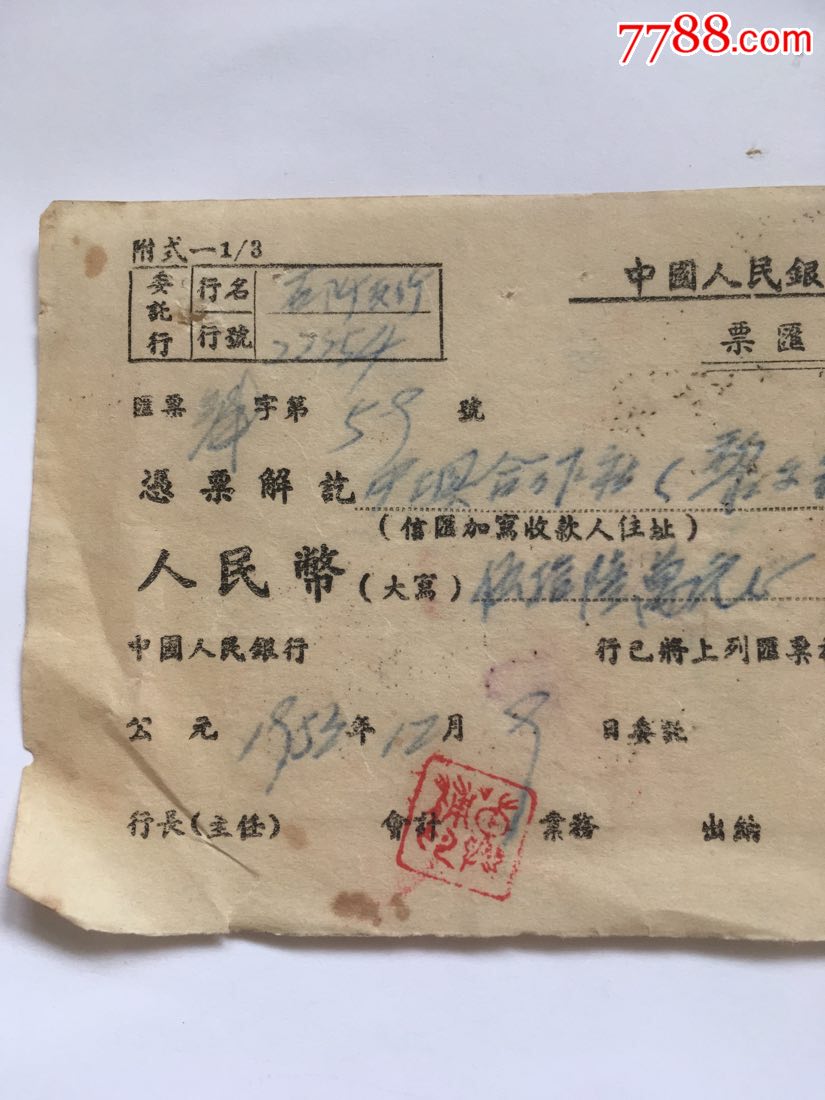 7788.com
附式一1/3
中國人民銀
委託行 行名
行號 22254
票匯
匯票 字第 59 號
憑票解訖 合作社（黎文
（信匯加寫收款人住址）
人民幣（大寫）伍拾陸萬元
中國人民銀行 行已將上列匯票
公元 1953 年 12 月 9 日委託
行長（主任） 會計 業務 出納